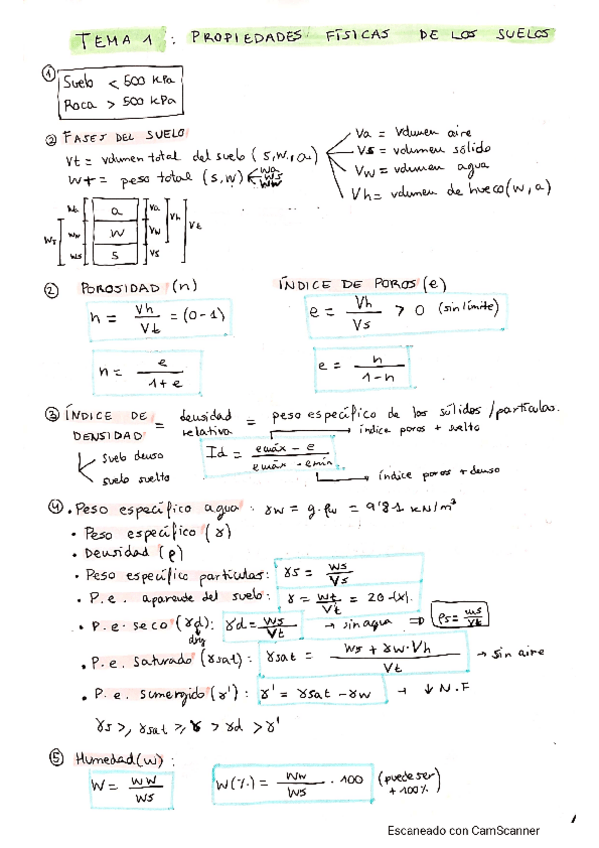 TEMA 1 : PROPIEDADES FÍSICAS DE LOS SUELOS
① Suelo < 500 kPa
Roca > 500 kPa
② FASES DEL SUELO
Vt = volumen total del suelo (s, w, a)
Va = Volumen aire
Vs = volumen sólido
Vw = volumen agua
Vh = volumen de hueco (w, a)
Wt = peso total (s, w)
Wa
Ws
Ww
WT
Wa
Ww
Ws
a
w
s
Va
Vw
Vs
Vh
Vt
② POROSIDAD (n)
n = Vh / Vt = (0-1)
n = e / 1+e
ÍNDICE DE POROS (e)
e = Vh / Vs > 0 (sin límite)
e = n / 1-n
③ ÍNDICE DE DENSIDAD = densidad relativa = peso específico de los sólidos / partículas.
suelo denso
suelo suelto
índice poros + suelto
Id = emáx - e / emáx - emín
índice poros + denso
④ • Peso específico agua : γw = g·ρw = 9'81 kN/m³
• Peso específico (γ)
• Densidad (ρ)
• Peso específico partículas: γs = Ws / Vs
• P.e. aparente del suelo: γ = Wt / Vt = 20
• P.e. seco (γd): γd = Ws / Vt → sin agua ⇒
dry
• P.e. Saturado (γsat): γsat = Ws + γw·Vh / Vt → sin aire
• P.e. sumergido (γ'): γ' = γsat - γw → ↓ N.F
γs >, γsat ≥, γ > γd > γ'
⑤ Humedad (w) :
W = Ww / Ws
W(%) = Ww / Ws · 100 (puede ser + 100%)
Escaneado con CamScanner